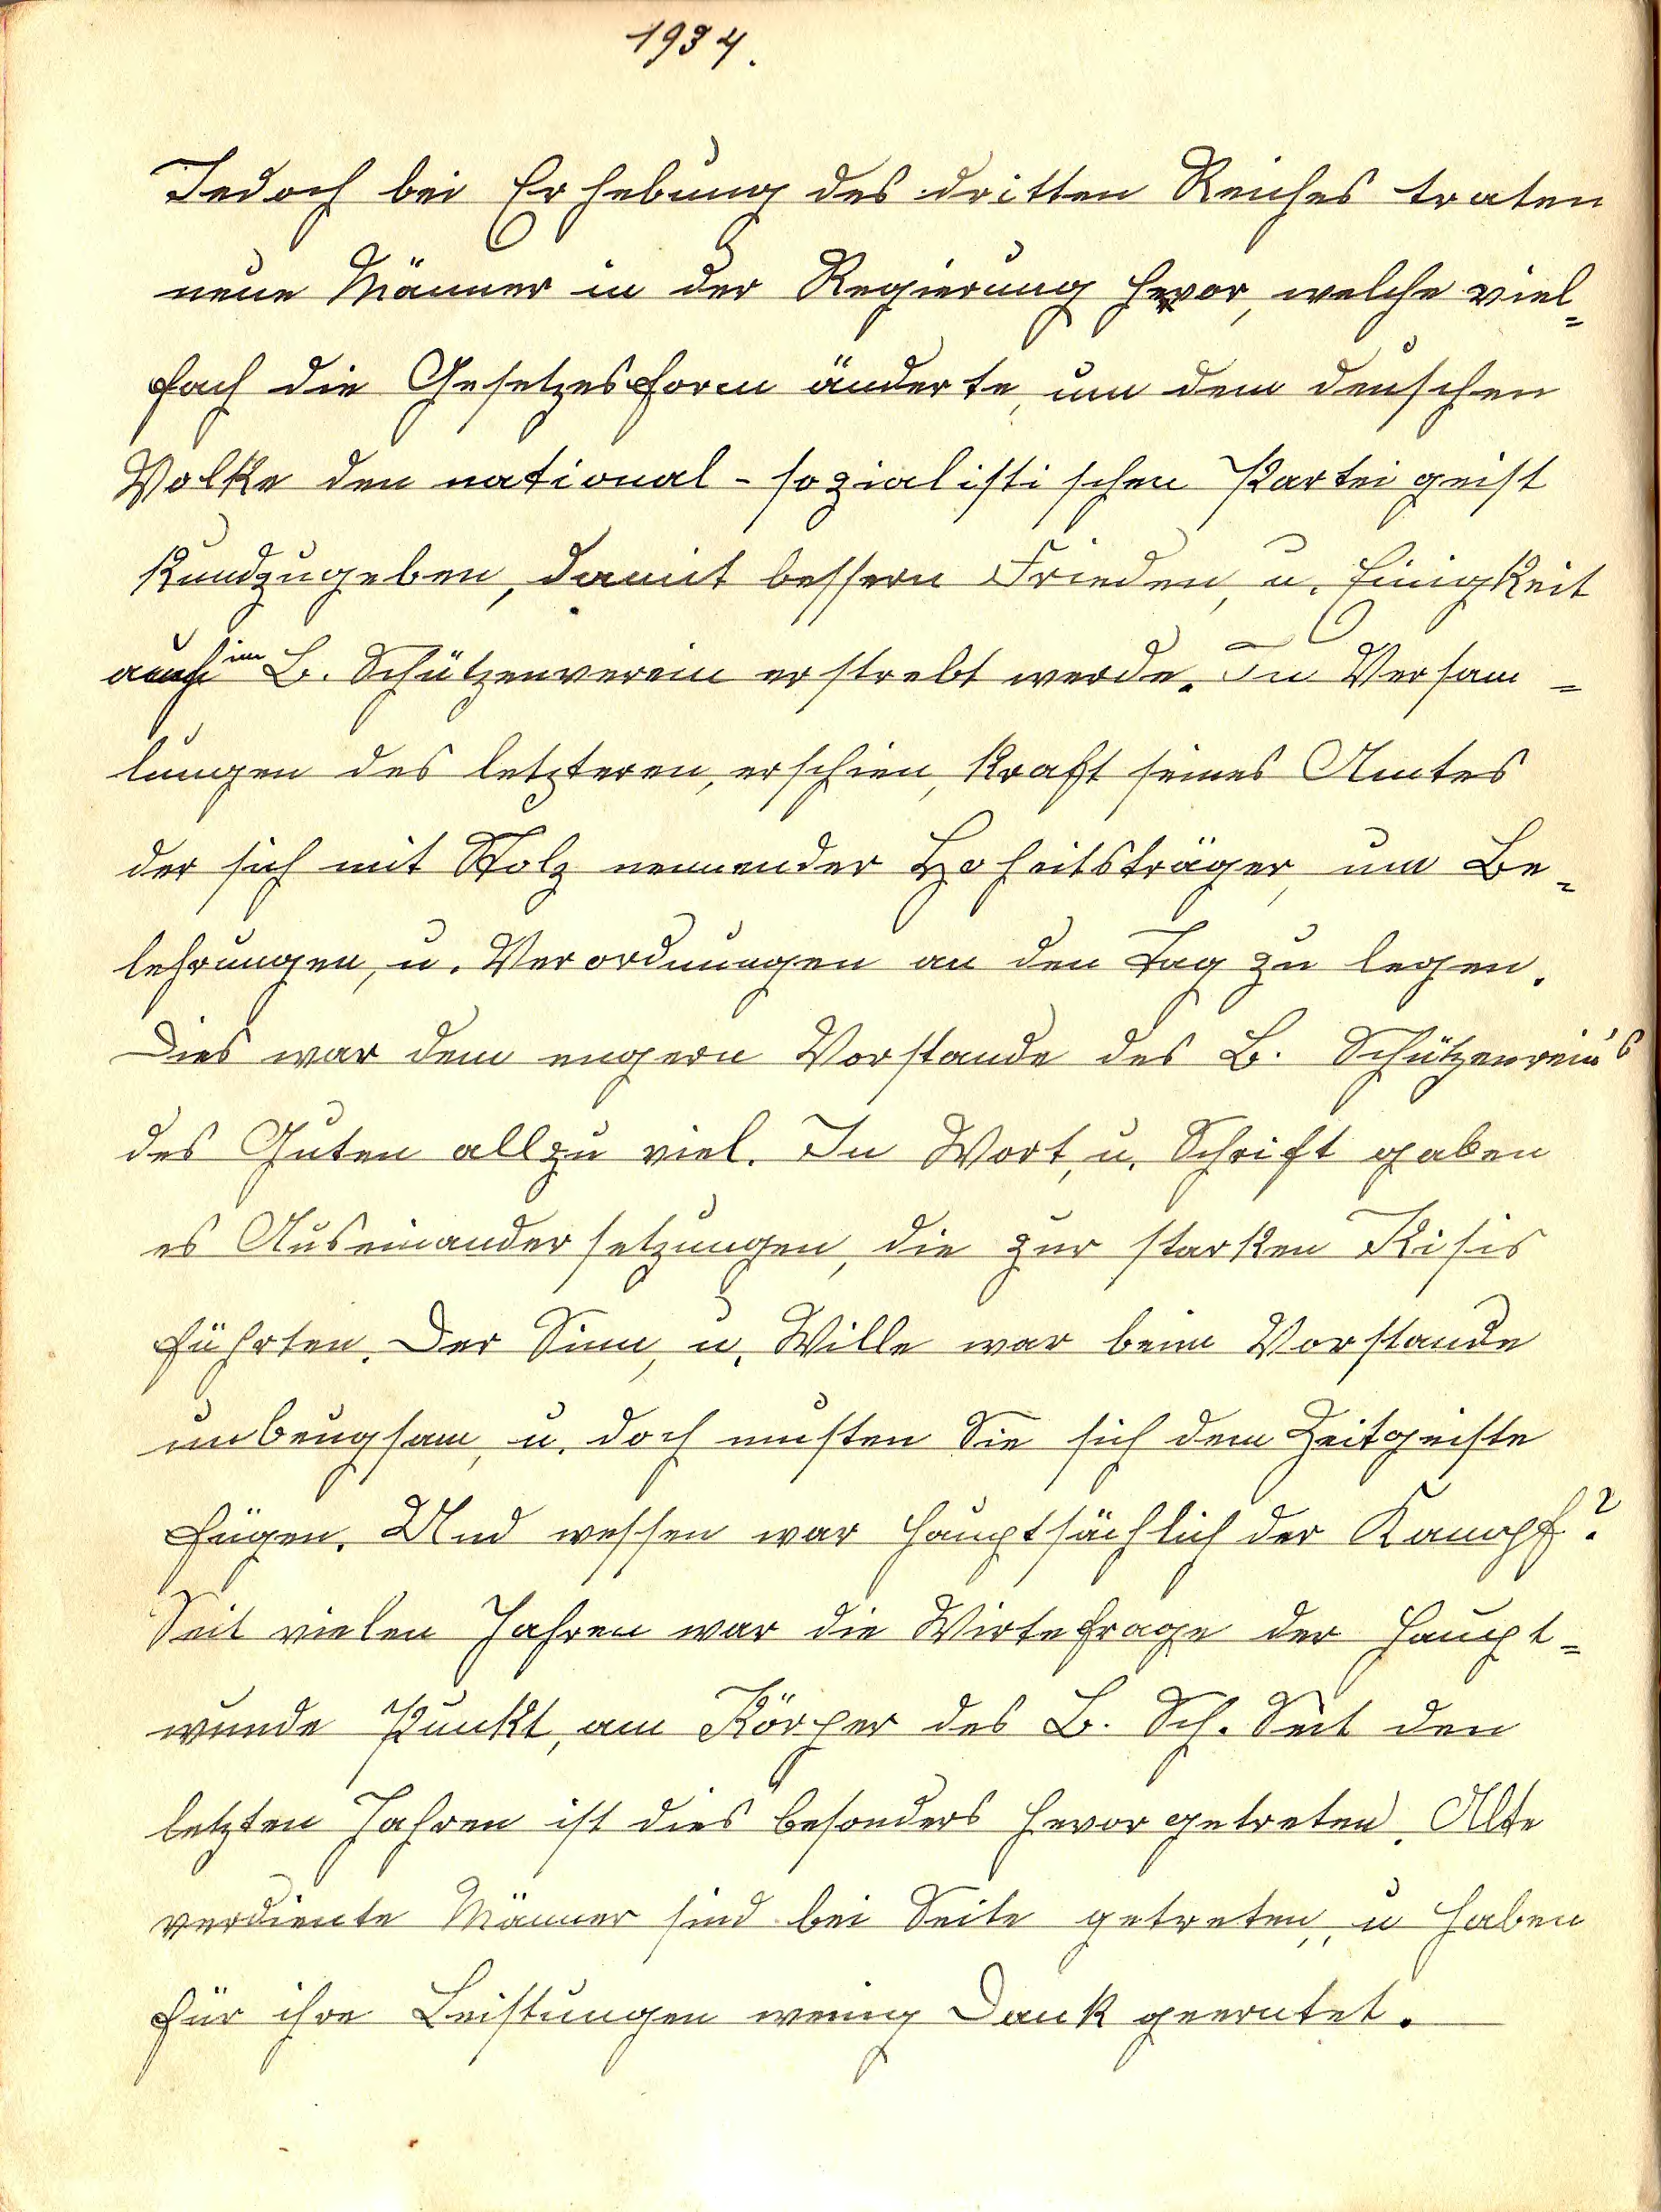 1934.
Jedoch bei Erhebung des dritten Reiches traten
neue Männer in der Regierung hervor, welche viel=
fach die Gesetzesform änderte, um dem deuschen
Volke den national-sozialistischen Parteigeist
kundzugeben, damit bessern Frieden, u. Einigkeit
auch im B. Schützenverein erstrebt werde. In Versam=
lungen des letzteren, erschien, kraft seines Amtes
der sich mit Stolz nennender Hoheitsträger, um Be=
lehrungen, u. Verordnungen an den Tag zu legen.
Dies war dem engern Vorstande des B. Schützenrein's
des Guten allzu viel. In Wort, u. Schrift gaben
es Auseinandersetzungen, die zur starken Kisis
führten. Der Sinn, u. Wille war beim Vorstande
unbeugsam, u. doch musten Sie sich dem Zeitgeiste
fügen. Und wessen war hauptsächlich der Kampf?
Seit vielen Jahren war die Wirtefrage der haupt=
wunde Punkt, am Körper des B. Sch. Seit den
letzten Jahren ist dies besonders hevorgetreten. Alte
verdiente Männer sind bei Seite getreten, u haben
für ihre Leistungen wenig Dank geerntet.